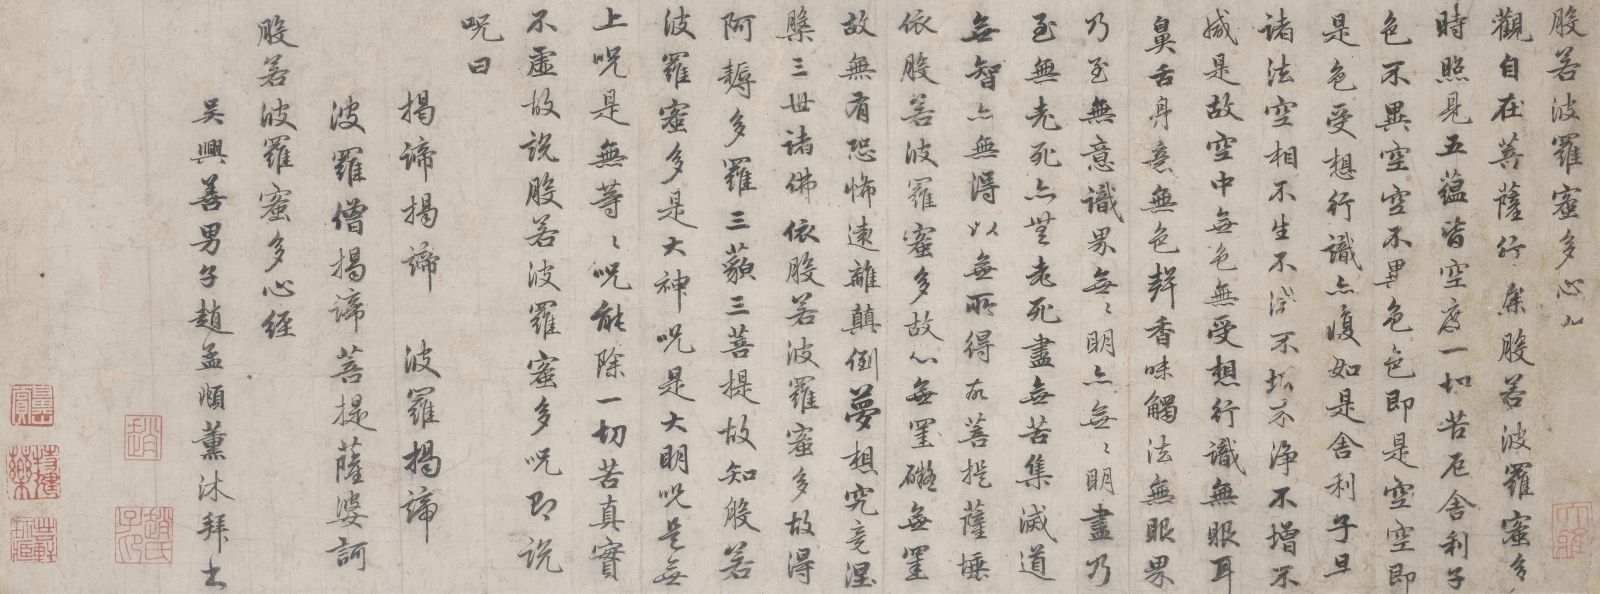 般若波羅蜜多心經
觀自在菩薩行深般若波羅蜜多
時照見五蘊皆空度一切苦厄舍利子
色不異空空不異色色即是空空即
是色受想行識亦復如是舍利子是
諸法空相不生不滅不垢不淨不增不
減是故空中無色無受想行識無眼耳
鼻舌身意無色聲香味觸法無眼界
乃至無意識界無無明亦無無明盡乃
至無老死亦無老死盡無苦集滅道
無智亦無得以無所得故菩提薩埵
依般若波羅蜜多故心無罣礙無罣
故無有恐怖遠離顛倒夢想究竟涅
槃三世諸佛依般若波羅蜜多故得
阿耨多羅三藐三菩提故知般若
波羅蜜多是大神呪是大明呪是無
上呪是無等等呪能除一切苦真實
不虛故說般若波羅蜜多呪即說
呪曰
揭諦揭諦 波羅揭諦
波羅僧揭諦 菩提薩婆訶
般若波羅蜜多心經
吳興善男子趙孟頫薰沐拜書
趙
趙氏子昂